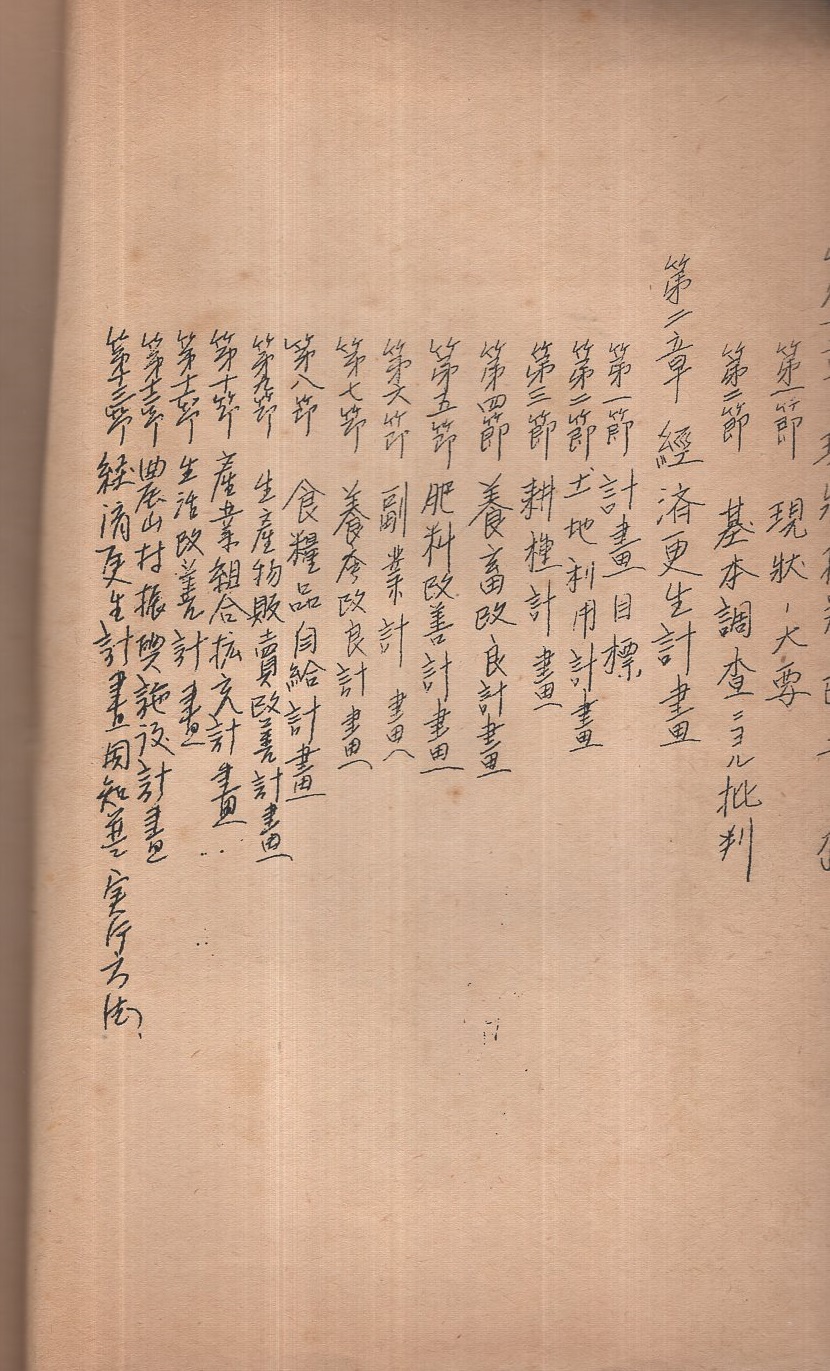 第一節 現状ノ大要
第二節 基本調査ニヨル批判
第二章 經済更生計畫
第一節 計畫目標
第二節 土地利用計畫
第三節 耕種計畫
第四節 養畜改良計畫
第五節 肥料改善計畫
第六節 副業計畫
第七節 養蚕改良計畫
第八節 食糧品自給計畫
第九節 生産物販賣改善計畫
第十節 産業組合拡充計畫
第十一節 生活改善計畫
第十二節 農山村振興施設計畫
第十三節 経済更生計畫周知並実行方法